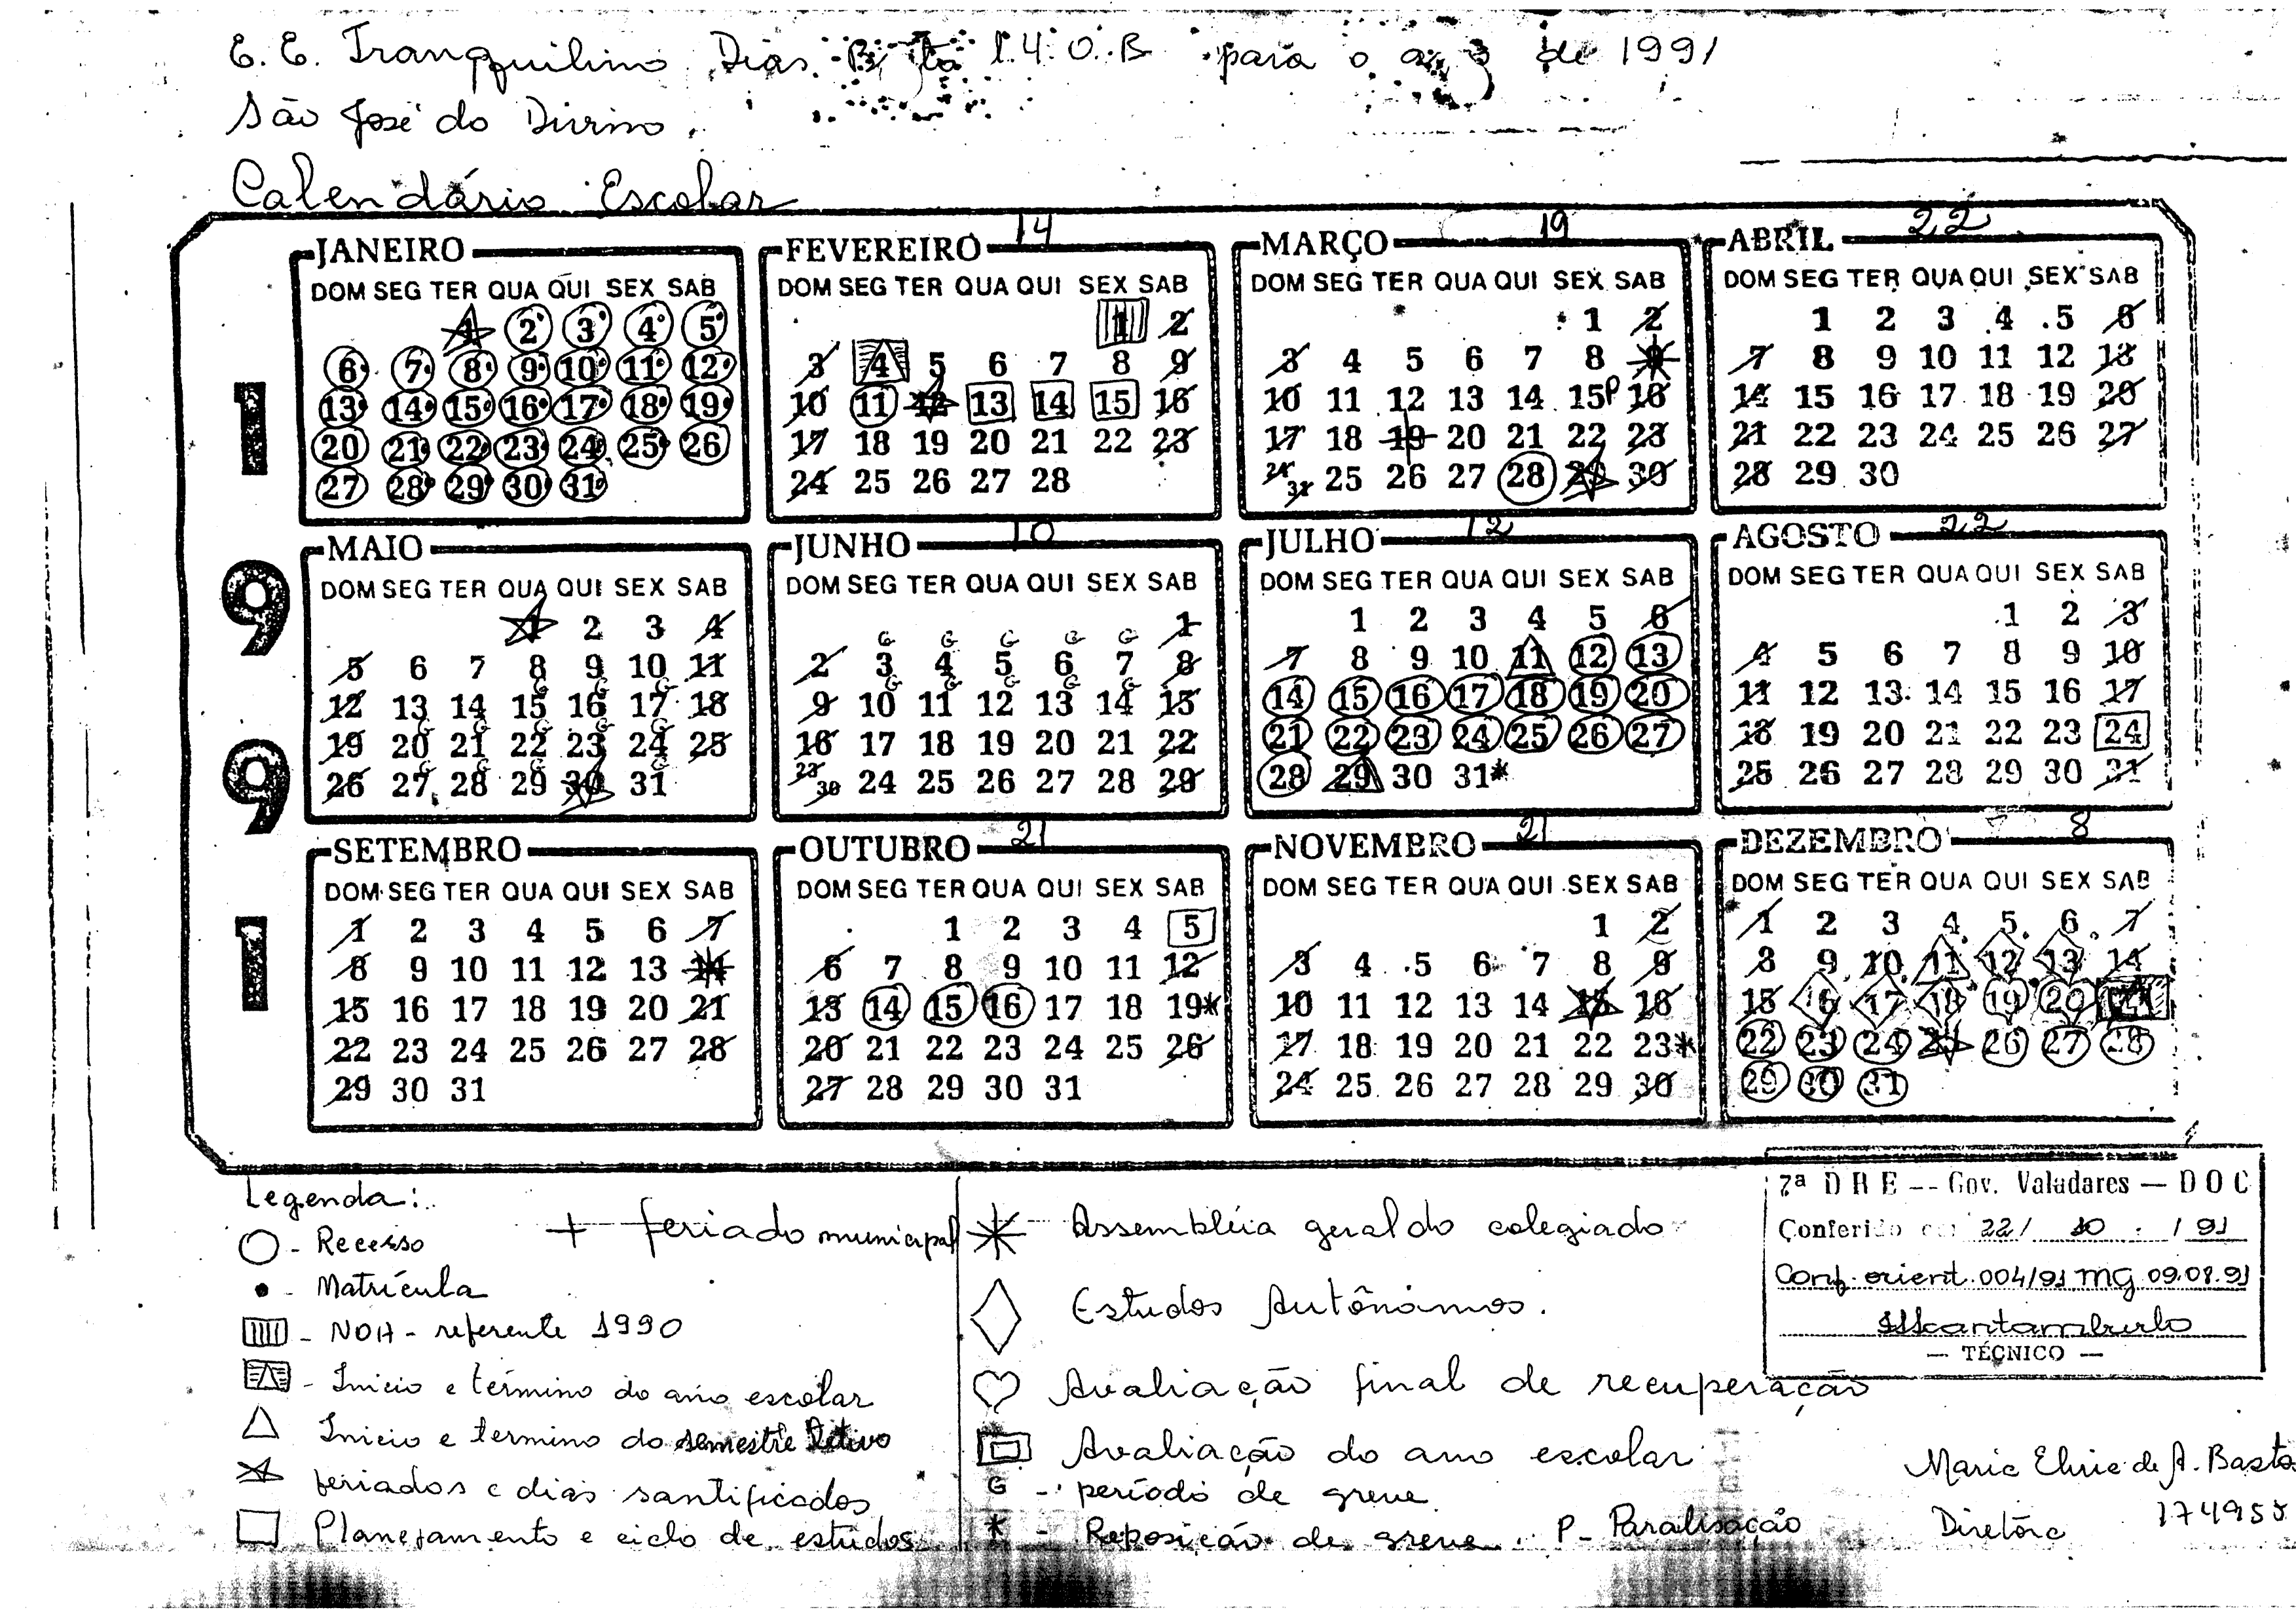 E. E. Tranqquilino Dias B 1.4.0.B para o de 1991
São José do Divino.
Calendário Escolar
1991
JANEIRO
DOM SEG TER QUA QUI SEX SAB
1 2 3 4 5
6 7 8 9 10 11 12
13 14 15 16 17 18 19
20 21 22 23 24 25 26
27 28 29 30 31
FEVEREIRO 14
DOM SEG TER QUA QUI SEX SAB
1 2
3 4 5 6 7 8 9
10 11 12 13 14 15 16
17 18 19 20 21 22 23
24 25 26 27 28
MARÇO 19
DOM SEG TER QUA QUI SEX SAB
1 2
3 4 5 6 7 8 9
10 11 12 13 14 15P 16
17 18 19 20 21 22 23
24 31 25 26 27 28 29 30
ABRIL 22
DOM SEG TER QUA QUI SEX SAB
1 2 3 4 5 6
7 8 9 10 11 12 13
14 15 16 17 18 19 20
21 22 23 24 25 26 27
28 29 30
MAIO
DOM SEG TER QUA QUI SEX SAB
1 2 3 4
5 6 7 8 9 10 11
G G G
12 13 14 15 16 17 18
G G G G G
19 20 21 22 23 24 25
G G G G
26 27 28 29 30 31
JUNHO 10
DOM SEG TER QUA QUI SEX SAB
1
G G G G G
2 3 4 5 6 7 8
G G G G G
9 10 11 12 13 14 15
16 17 18 19 20 21 22
23 30 24 25 26 27 28 29
JULHO 12
DOM SEG TER QUA QUI SEX SAB
1 2 3 4 5 6
7 8 9 10 11 12 13
14 15 16 17 18 19 20
21 22 23 24 25 26 27
28 29 30 31*
AGOSTO 22
DOM SEG TER QUA QUI SEX SAB
1 2 3
4 5 6 7 8 9 10
11 12 13 14 15 16 17
18 19 20 21 22 23 24
25 26 27 28 29 30 31
SETEMBRO
DOM SEG TER QUA QUI SEX SAB
1 2 3 4 5 6 7
8 9 10 11 12 13 14
15 16 17 18 19 20 21
22 23 24 25 26 27 28
29 30 31
OUTUBRO 21
DOM SEG TER QUA QUI SEX SAB
1 2 3 4 5
6 7 8 9 10 11 12
13 14 15 16 17 18 19*
20 21 22 23 24 25 26
27 28 29 30 31
NOVEMBRO 21
DOM SEG TER QUA QUI SEX SAB
1 2
3 4 5 6 7 8 9
10 11 12 13 14 15 16
17 18 19 20 21 22 23*
24 25 26 27 28 29 30
DEZEMBRO 8
DOM SEG TER QUA QUI SEX SAB
1 2 3 4 5 6 7
8 9 10 11 12 13 14
15 16 17 18 19 20 21
22 23 24 25 26 27 28
29 30 31
Legenda:
- Recesso
+ feriado municipal
- Matrícula
- NOA - referente 1990
- Inicio e término do ano escolar
Inicio e termino do semestre letivo
feriados e dias santificados
Planejamento e ciclo de estudos
Assembléia geral do colegiado
Estudos Autônomos.
Avaliação final de recuperação
Avaliação do ano escolar
G - período de greve
* - Reposição de greve. P - Paralisação
7ª DRE -- Gov. Valadares — DOC
Conferido em 22/ 10 / 91
Conf. orient. 004/91 MG 09.08.91
— TÉCNICO —
Maria de A. Basto
Diretora 174955